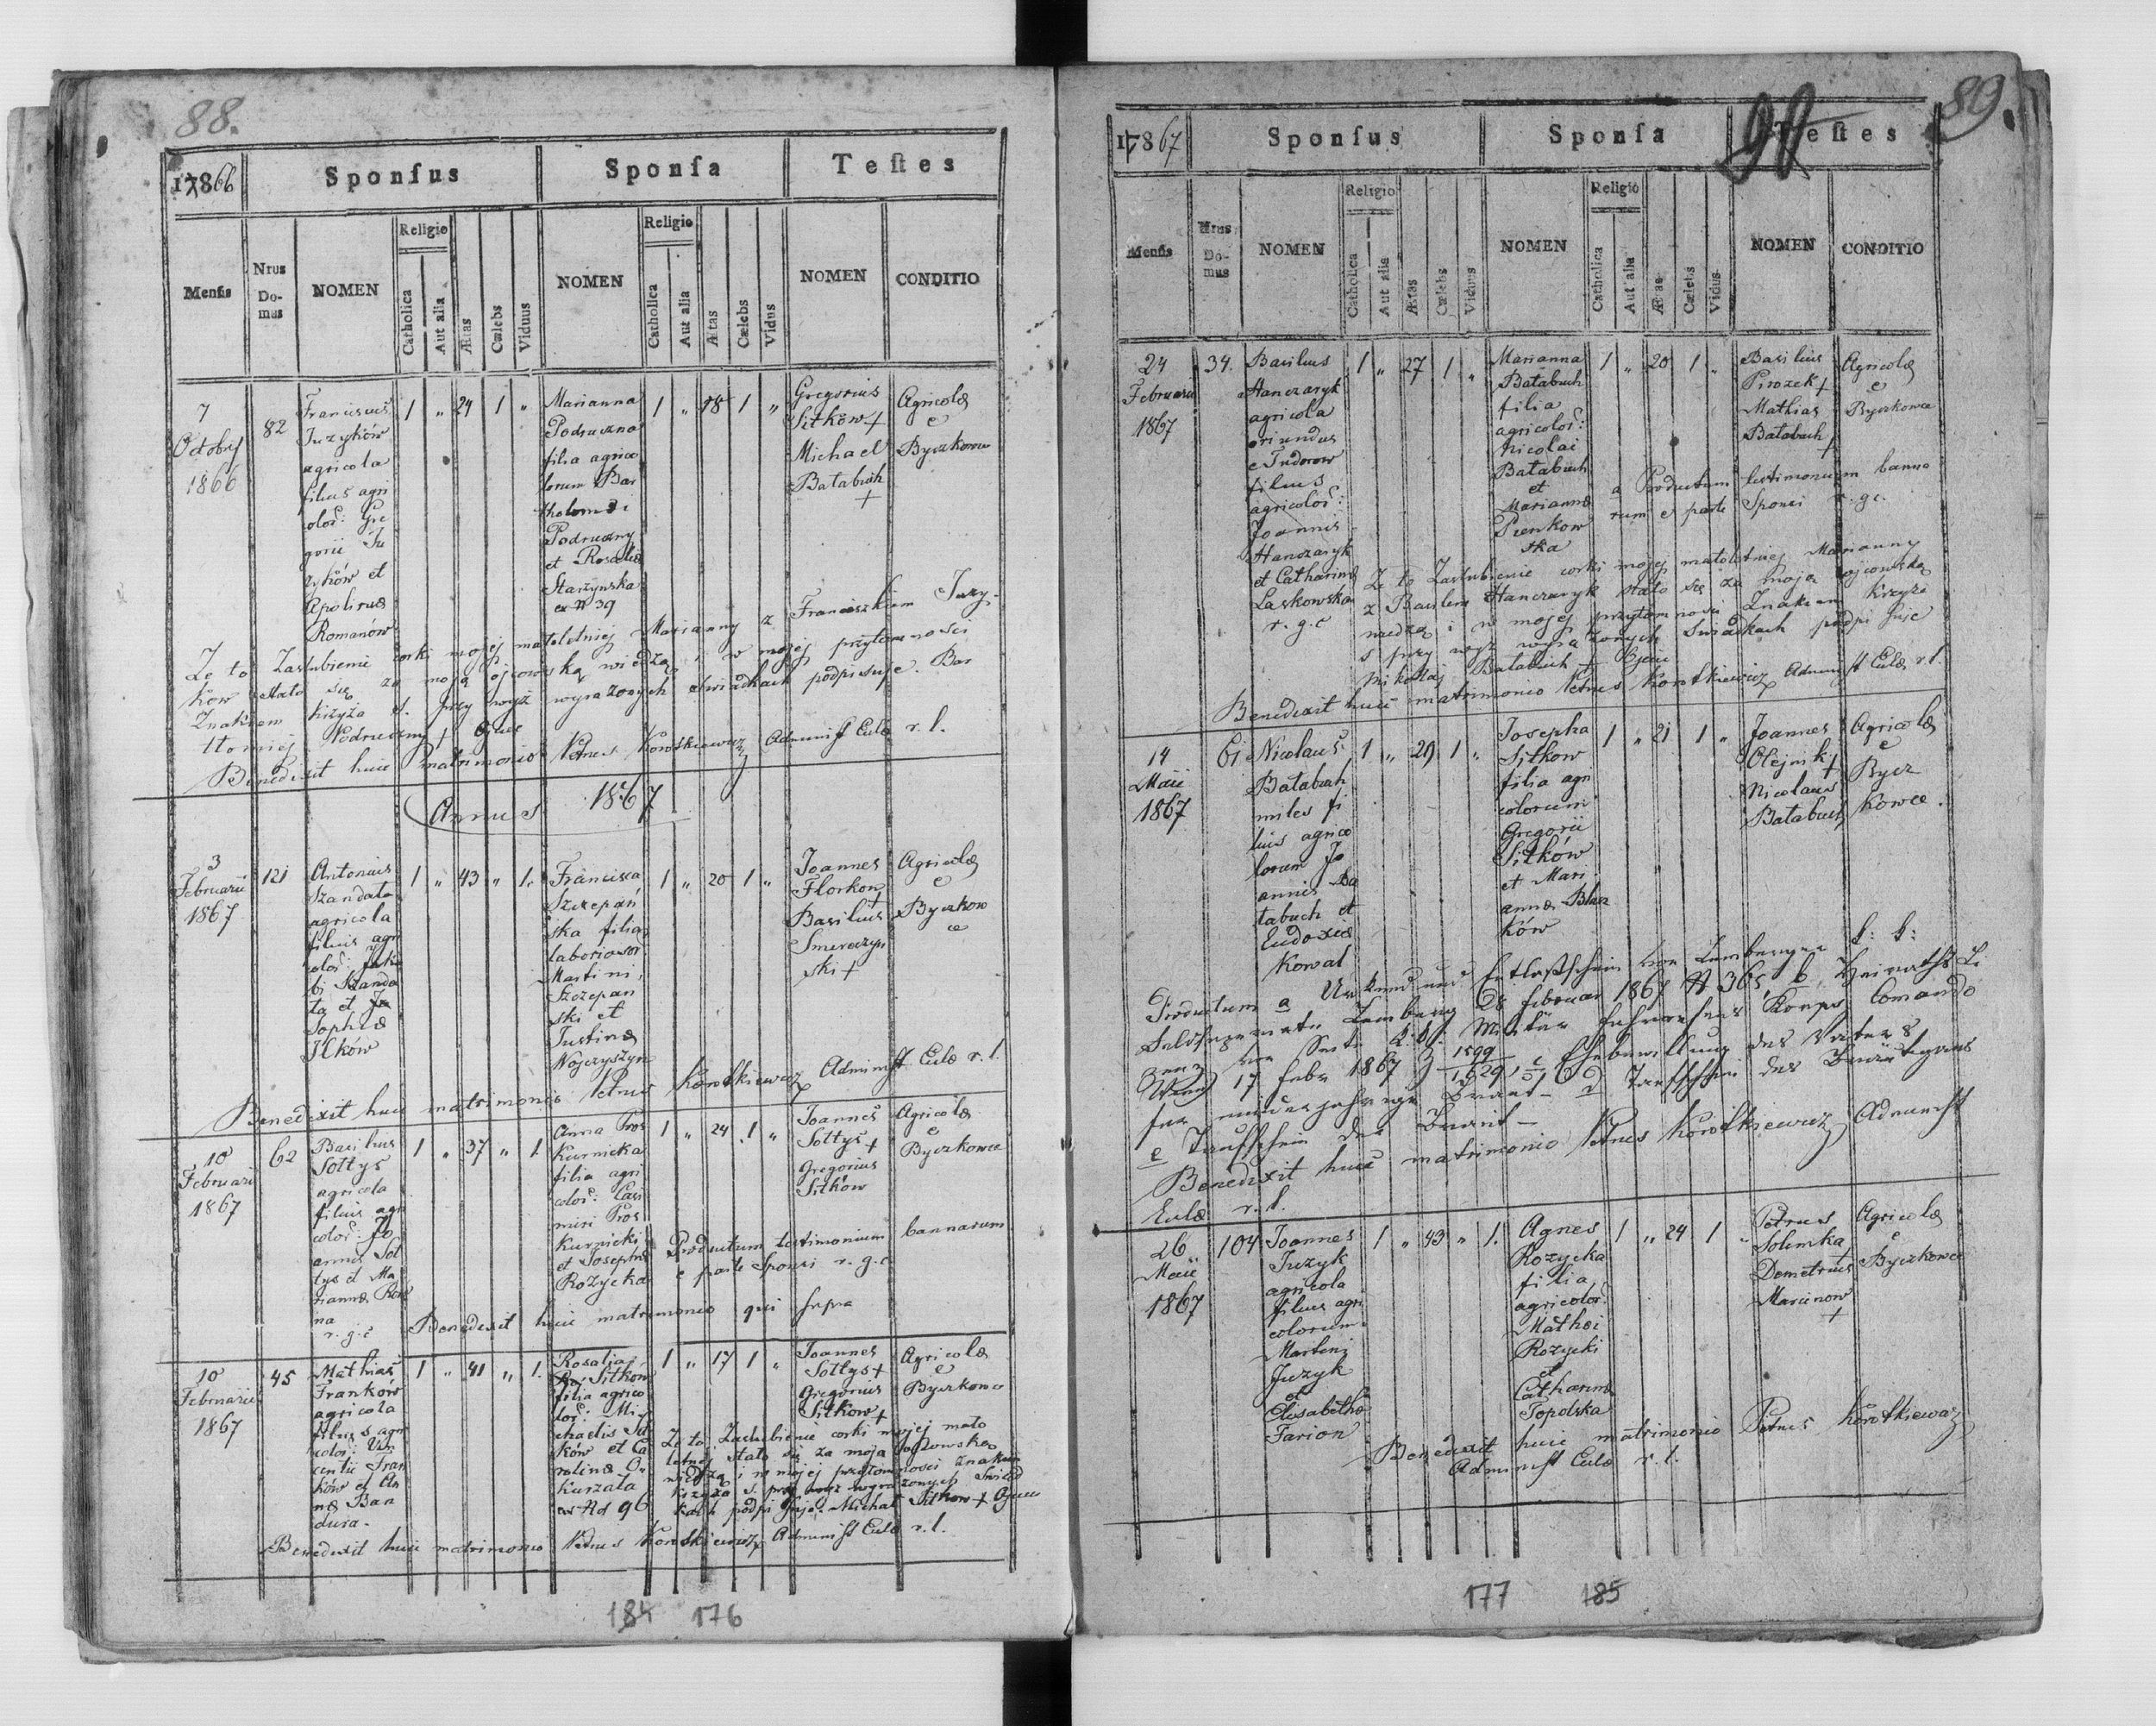 88.
17866
Sponſus
Sponſa
Teſtes
Menſis
Nrus Do-mus
NOMEN
Religio
Catholica
Aut alia
Ætas
Cælebs
Viduus
NOMEN
Religio
Catholica
Aut alia
Ætas
Cælebs
Vidus
NOMEN
CONDITIO
7
Octobris
1866
82
Franciscus
Juzyków
agricola
filius agri
color: Gre
gorii Ju
zyków et
Apolinæ
Romanów
1 " 24 1 "
Marianna
Podruczna
filia agrico
lorum Bar
tholomæi
Podruczny
et Rosaliæ
Starzynska
ex N 39
1 " 18 1 "
Gregorius
Sitków +
Michael
Batabuch
+
Agricolæ
e
Byczkowce
Ze to Zaslubienie corki mojej matoletniej Marianny z Franciszkiem Juzy-
ków stato się za moją ojcowską wiedzą i w mojej przytomności
Znakiem krzyża s. przy wyż wyrażonych świadkach podpisuje. Bar
tłomiej Podruczny + Ojciec
Benedixit huic matrimonio Petrus Korotkiewicz Administ Eulæ r. l.
Annus 1867
3
Februarii
1867
121
Antonius
Szandata
agricola
filius agri
color: Jako
bi Szanda
ta et
Sophiæ
Ilków
1 " 43 " 1.
Francisca
Szczepań
ska filia
laboriosor
Martini
Szczepań
ski et
Justinæ
Wojczyszyn
1 " 20 1 "
Joannes
Florkow
+
Basilius
Smereczyn
ski +
Agricolæ
e
Byczkow
ce
Benedixit huic matrimonio Petrus Korotkiewicz Administ Eulæ r. l.
10
Februarii
1867
62
Basilius
Sottys
agricola
filius agri
color: Jo
annis Sot
tys et Ma
riannæ
na
r. g. c
1 " 37 " 1
Anna Pros
Kurnicka
filia agri
color: Casi
miri Pros
Kurnicki
et Josephæ
Rożycka
1 " 24 1 "
Joannes
Sottys +
Gregorius
Sitków
Agricolæ
e
Byczkowce
Productum testimonium bannorum
e parte Sponsi r. g. c
Benedixit huic matrimonio qui supra
10
Februarii
1867
45
Mathias
Franków
agricola
filius agri
color: Vin
centii Fran
ków et An
næ Ban
dura.
1 " 41 " 1.
Rosalia
Sitków
filia agrico
lor: Mi
chaelis Sit
ków et Ca
rolinæ O.
Kurzata
ex Nd 96
1 " 17 1 "
Joannes
Sottys +
Gregorius
Sitkow +
Agricolæ
e
Byczkowce
Ze to Zaslubienie corki mojej mato
letniej stato się za moją ojcowską
wiedzą i w mojej przytomnosci Znakiem
krzyża S. przy wyż wyrażonych Swiad
kach podpisuje Michał Sitkow + Ojciec
Benedixit huic matrimonio Petrus Korotkiewicz Administ Eulæ r. l.
184 176
89
90
17867
Sponſus
Sponſa
Teſtes
Menſis
Nrus Do-mus
NOMEN
Religio
Catholica
Aut alia
Ætas
Cælebs
Vidus
NOMEN
Religio
Catholica
Aut alia
Ætas
Cælebs
Vidus
NOMEN
CONDITIO
24
Februarii
1867
34.
Basilius
Hanczaryk
agricola
oriundus
e Tudorow
filius
agricolor:
Joannis
Hanczaryk
et Catharinæ
Laskowska
r. g. c
1 " 27 1 "
Marianna
Batabuch
filia
agricolor:
Nicolai
Batabuch
et
Mariannæ
Pienkow
ska
1 " 20 1 "
Basilius
Pirozek +
Mathias
Batabuch
+
Agricolæ
e
Byczkowce
a Productum testimonium banno
rum e parte Sponsi r. g. c.
Ze to Zaslubienie corki mojej matoletniej Marianny
z Basilem Hanczaryk stato się za moją ojcowską
wiedzą i w mojej przytomnosci Znakiem Krzyża
S przy wyż wyrażonych Swiadkach podpisuje
Mikołaj Batabuch + Ojciec
Benedixit huic matrimonio Petrus Korotkiewicz Administ Eulæ r. l.
14
Maii
1867
61
Nicolaus
Batabuch
miles fi
lius agrico
lorum Jo
annis Ba
tabuch et
Eudoxiæ
Kowal
1 " 29 1 "
Josepha
Sitkow
filia agri
colorum
Gregorii
Sitków
et Mari
annæ Blasz
ków
1 " 21 1 "
Joannes
Olejnik
+
Nicolaus
Batabuch
Agricolæ
e
Bycz
kowce.
Productum a Urkund und Entlaßschein von Lemberger
Lemberg 28 februar 1867 N 365, b Heiraths Li
zenz von Seite K. K. Militär fuhrwesens Korps Comando
Wien 17 febr 1867 1599/1629, c Ehebewilligung des Vaters
für minderjährige Braut - d Taufschein des Bräutigams
e Taufschein der Braut -
Benedixit huic matrimonio Petrus Korotkiewicz Administ
Eulæ r. l.
26
Maii
1867
104
Joannes
Juzyk
agricola
filius agri
colorum
Martini
Juzyk
et
Elisabethæ
Farion
1 " 43 " 1.
Agnes
Rożycka
filia
agricolor:
Mathæi
Rożycki
et
Catharinæ
Topolska
1 " 24 1 "
Petrus
Solimka
+
Demetrius
Marcinow
+
Agricolæ
e
Byczkowce
Benedixit huic matrimonio Petrus Korotkiewicz
Administ Eulæ r. l.
177 185